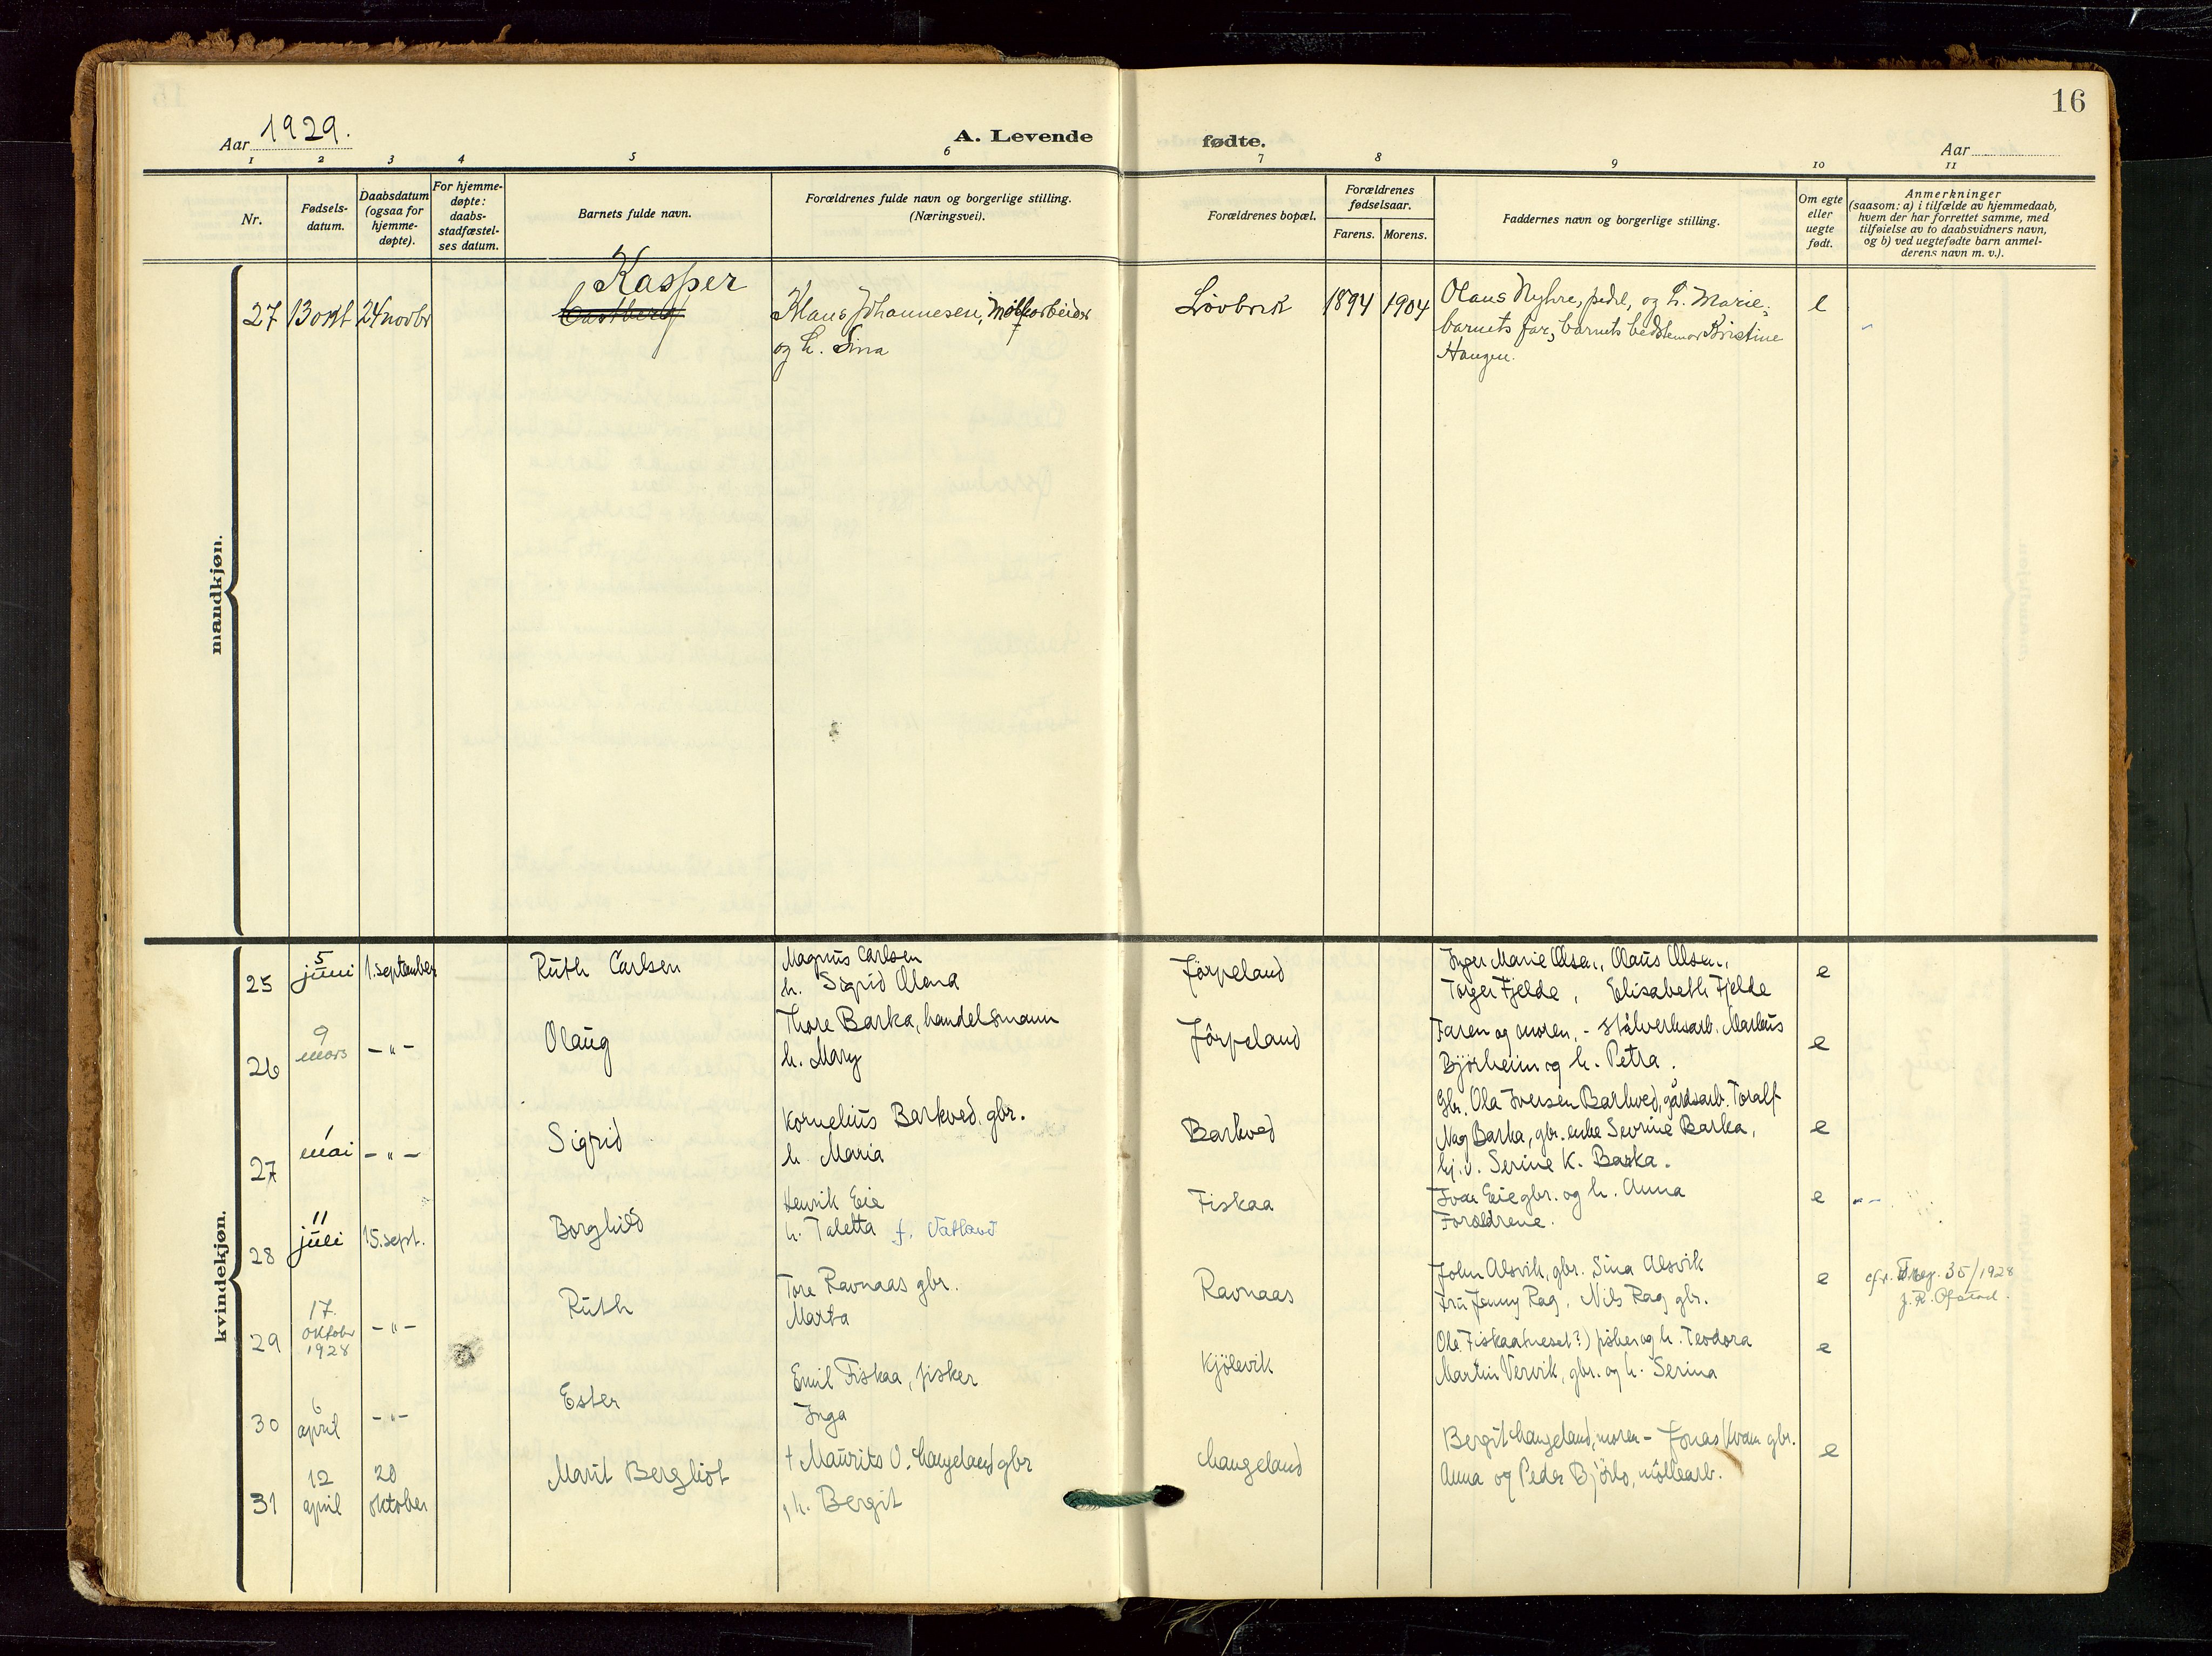 16
Aar 1929.
A. Levende fødte.
Aar
1 2 3 4 5 6 7 8 9 10 11
Nr.
Fødsels-
datum.
Daabsdatum
(ogsaa for
hjemme-
døpte).
For hjemme-
døpte:
daabs-
stadfæstel-
ses datum.
Barnets fulde navn.
Forældrenes fulde navn og borgerlige stilling.
(Næringsvei).
Forældrenes bopæl.
Forældrenes
fødselsaar.
Farens. Morens.
Faddernes navn og borgerlige stilling.
Om egte
eller
uegte
født.
Anmerkninger
(saasom: a) i tilfælde av hjemmedaab,
hvem der har forrettet samme, med
tilføielse av to daabsvidners navn,
og b) ved uegtefødte barn anmel-
derens navn m. v.).
mandkjøn.
27 13 okt 24 novbr
Kasper
Castberg
Klaus Johannesen,
og h. Sina
Løvbrek 1894 1904
Olaus Nyhre, og h. Marie,
barnets far, barnets bedstemor Kristine
Haugen.
e
kvindekjøn.
25 5 juni 1. september Ruth Carlsen
Magnus Carlsen
h. Sigrid Olena
Jørpeland
Inger Marie Olsen, Olaus Olsen,
Torger Fjelde, Elisabeth Fjelde
e
26 9 mars -"- Olaug
Thore Barka, handelsmann
h. Mary
Jørpeland
Faren og moren, - stålverksarb. Markus
Bjørheim og h. Petra.
e
27 1 mai -"- Sigrid
Kornelius Barkved, gbr.
h. Maria
Barkved
Gbr. Ola Iversen Barkved, gårdsarb. Toralf
Nag Barka, gbr. enke Sevrine Barka,
hj.v. Serine K. Barka.
e
28 11 juli 15. sept. Borghild
Henrik Eie
h. Taletta f. Vatland
Fiskaa
Ivar Eie gbr. og h. Anna
Forældrene.
e
29 17. oktober 1928 -"- Ruth
Tore Ravnaas gbr.
Marta
Ravnaas
John Alsvik, gbr. Sina Alsvik
Fru Jenny Rag, Nils Rag gbr.
e
cfr. 35/1928
30 6 april -"- Ester
Emil Fiskaa, fisker
Inga
Kjølevik
Ole Fiskaa(neset?) fisker og h. Teodora
Martin Vervik, gbr. og h. Serina
e
31 12 april 20 oktober Marit Bergliot
† Maurits O. Langeland gbr
h. Bergit
Langeland
Bergit Langeland, moren - Jonas Kvam gbr.
Anna og Peder Bjørlo, møllearb.
e